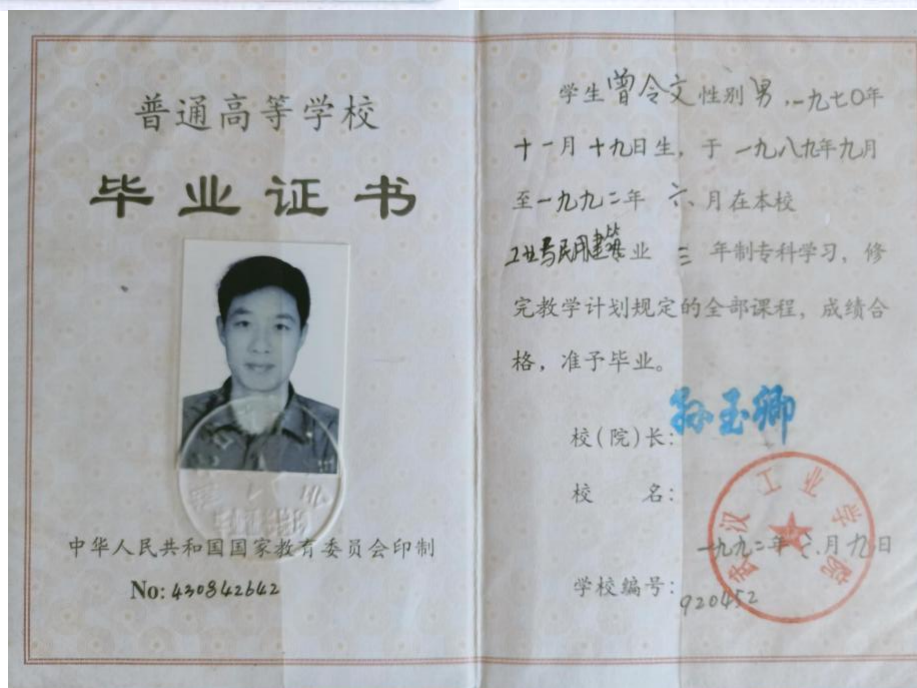 普通高等学校
毕业证书
中华人民共和国国家教育委员会印制
No: 430842642
学生曾令文性别男，一九七〇年
十一月十九日生，于一九八九年九月
至一九九二年 六 月在本校
工业与民用建筑业 三 年制专科学习，修
完教学计划规定的全部课程，成绩合
格，准予毕业。
校(院)长: 孙玉卿
校 名:
武汉工业学院
一九九二年 月九日
学校编号: 920452